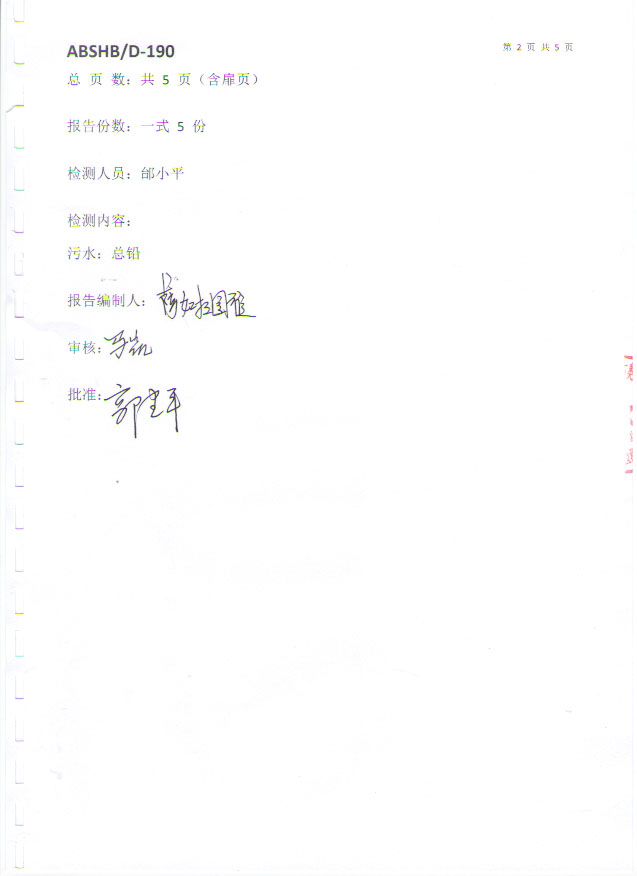 ABSHB/D-190
第 2 页 共 5 页
总 页 数: 共 5 页（含扉页）
报告份数: 一式 5 份
检测人员: 邰小平
检测内容:
污水: 总铅
报告编制人:
审核: 马凯
批准: 郭建平